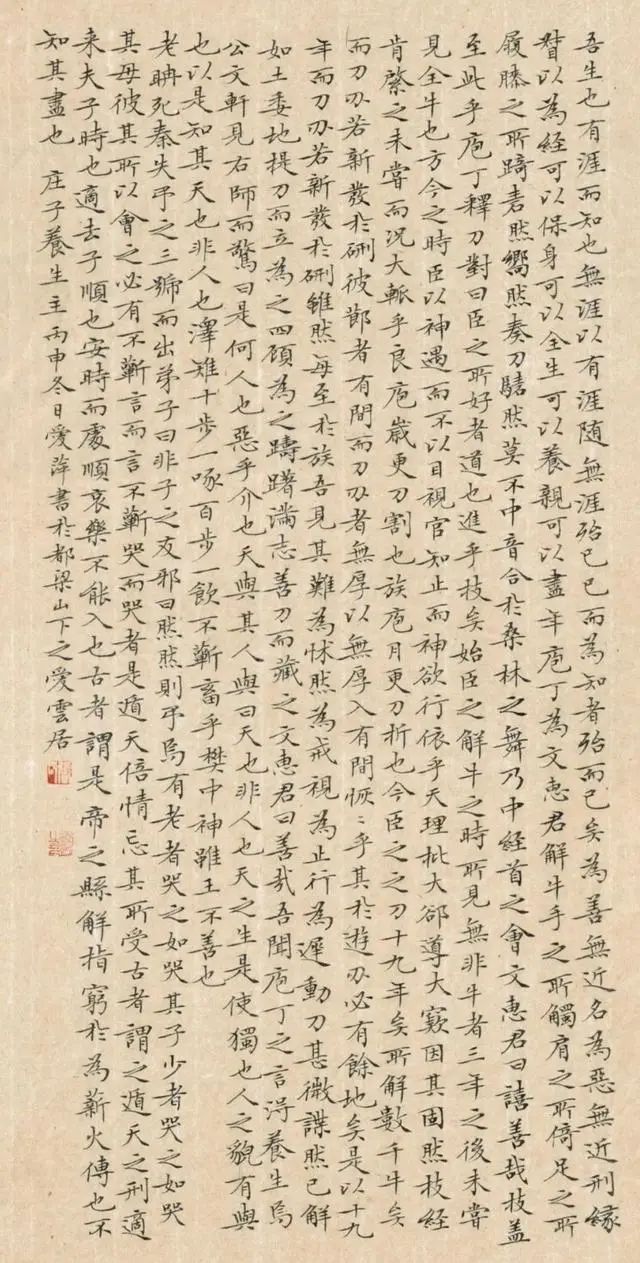 吾生也有涯而知也無涯以有涯随無涯殆已已而為知者殆而已矣為善無近名為惡無近刑緣
督以為經可以保身可以全生可以養親可以盡年庖丁為文惠君解牛手之所觸肩之所倚足之所
履膝之所踦砉然嚮然奏刀騞然莫不中音合於桑林之舞乃中經首之會文惠君曰譆善哉技盖
至此乎庖丁釋刀對曰臣之所好者道也進乎技矣始臣之解牛之時所見無非牛者三年之後未嘗
見全牛也方今之時臣以神遇而不以目視官知止而神欲行依乎天理批大郤導大窾因其固然技經
肯綮之未嘗而況大軱乎良庖嵗更刀割也族庖月更刀折也今臣之之刀十九年矣所解數千牛矣
而刀刃若新發於硎彼節者有間而刀刃者無厚以無厚入有間恢〻乎其於遊刃必有餘地矣是以十九
年而刀刃若新發於硎雖然每至於族吾見其難為怵然為戒視為止行為遲動刀甚微謋然已解
如土委地提刀而立為之四顧為之躊躇滿志善刀而藏之文惠君曰善哉吾聞庖丁之言淂養生焉
公文軒見右師而驚曰是何人也惡乎介也天與其人與曰天也非人也天之生是使獨也人之貌有與
也以是知其天也非人也澤雉十步一啄百步一飲不蘄畜乎樊中神雖王不善也
老聃死秦失弔之三號而出弟子曰非子之友邪曰然然則弔焉有老者哭之如哭其子少者哭之如哭
其母彼其所以會之必有不蘄言而言不蘄哭而哭者是遁天倍情忘其所受古者謂之遁天之刑適
来夫子時也適去子順也安時而處順哀樂不能入也古者謂是帝之縣解指窮於為薪火傳也不
知其盡也 庄子養生主丙申冬日愛萍書於都梁山下之愛雲居